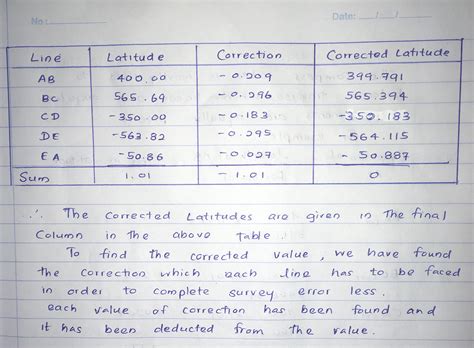 No: Date: / /
Line Latitude Correction Corrected Latitude
AB 400.00 - 0.209 399.791
BC 565.69 - 0.296 565.394
CD -350.00 - 0.183 -350.183
DE -563.82 - 0.295 - 564.115
EA -50.86 - 0.027 - 50.887
Sum 1.01 - 1.01 0
∴ The Corrected Latitudes are given in the final
Column in the above table.
To find the corrected value, we have found
the correction which each line has to be faced
in order to complete survey error less.
each value of correction has been found and
it has been deducted from the value.